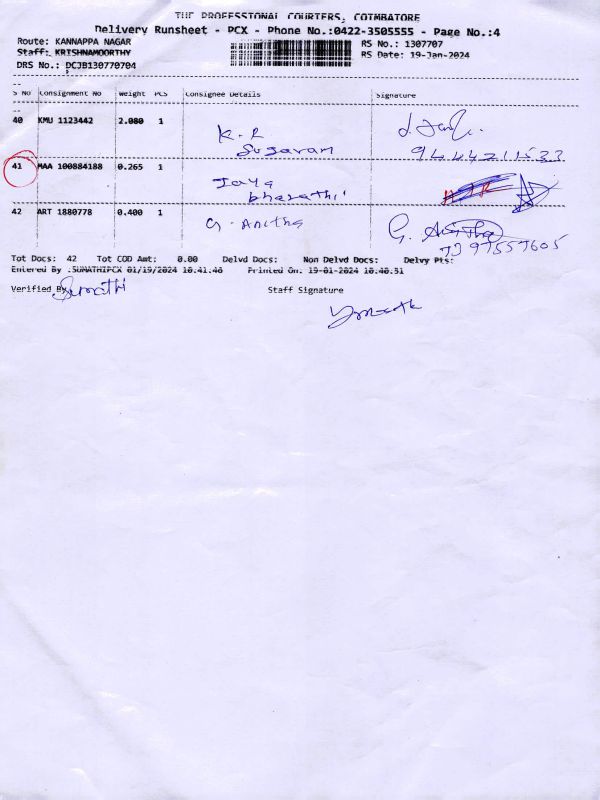 THE PROFESSIONAL COURIERS, COIMBATORE
Delivery Runsheet - PCX - Phone No.:0422-3505555 - Page No.:4
Route: KANNAPPA NAGAR RS No.: 1307707
Staff: KRISHNAMOORTHY RS Date: 19-Jan-2024
DRS No.: DCJB130770704
S No Consignment No Weight PCS Consignee Details Signature
40 KMU 1123442 2.080 1
K. R
Sugavam
41 MAA 100884188 0.265 1
Jaya
bharathi
42 ART 1880778 0.400 1 G. Anitha G. Anitha
Tot Docs: 42 Tot COD Amt: 0.00 Delvd Docs: Non Delvd Docs: Delvy Pts:
Entered By :SUMATHIPCX 01/19/2024 10:41:40 Printed On: 19-01-2024 10:40:31
Verified By Sumathi Staff Signature